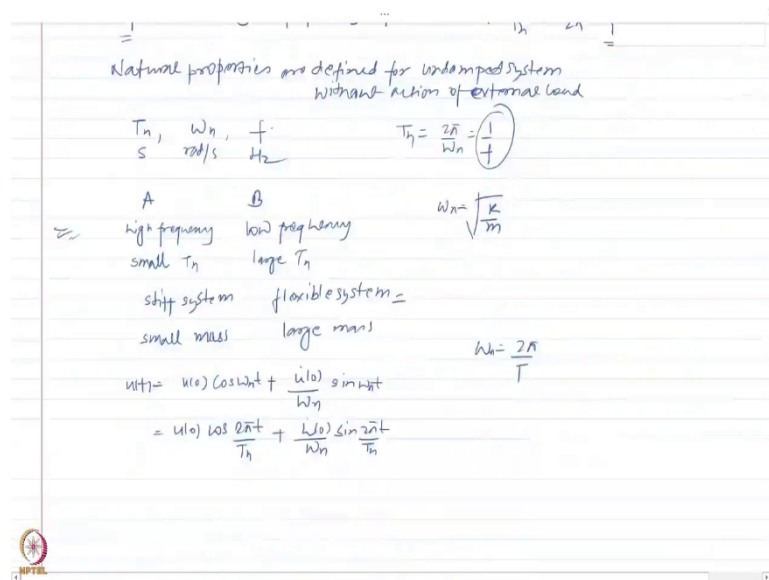 Tn 2π 1
Natural properties are defined for undamped system
without action of external load
Tn, Wn, f. Tn = 2π/Wn = 1/f
S rad/s Hz
A B Wn = √K/m
high frequency low frequency
small Tn large Tn
stiff system flexible system =
small mass large mass
Wn = 2π/T
u(t) = u(0) cos Wnt + u̇(0)/Wn sin Wnt
= u(0) cos 2πt/Tn + u̇(0)/Wn sin 2πt/Tn
NPTEL